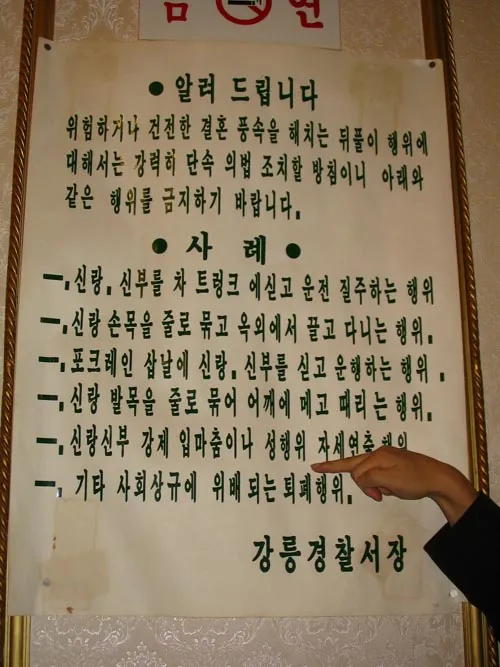 금 연
● 알려 드립니다
위험하거나 건전한 결혼 풍속을 해치는 뒤풀이 행위에
대해서는 강력히 단속 의법 조치할 방침이니 아래와
같은 행위를 금지하기 바랍니다.
● 사 례 ●
一. 신랑. 신부를 차 트렁크 에싣고 운전 질주하는 행위
一. 신랑 손목을 줄로 묶고 옥외에서 끌고 다니는 행위.
一. 포크레인 삽날에 신랑. 신부를 싣고 운행하는 행위.
一. 신랑 발목을 줄로 묶어 어깨에 메고 때리는 행위.
一. 신랑신부 강제 입마춤이나 성행위 자세연출 행위
一. 기타 사회상규에 위배되는 퇴폐행위.
강릉경찰서장